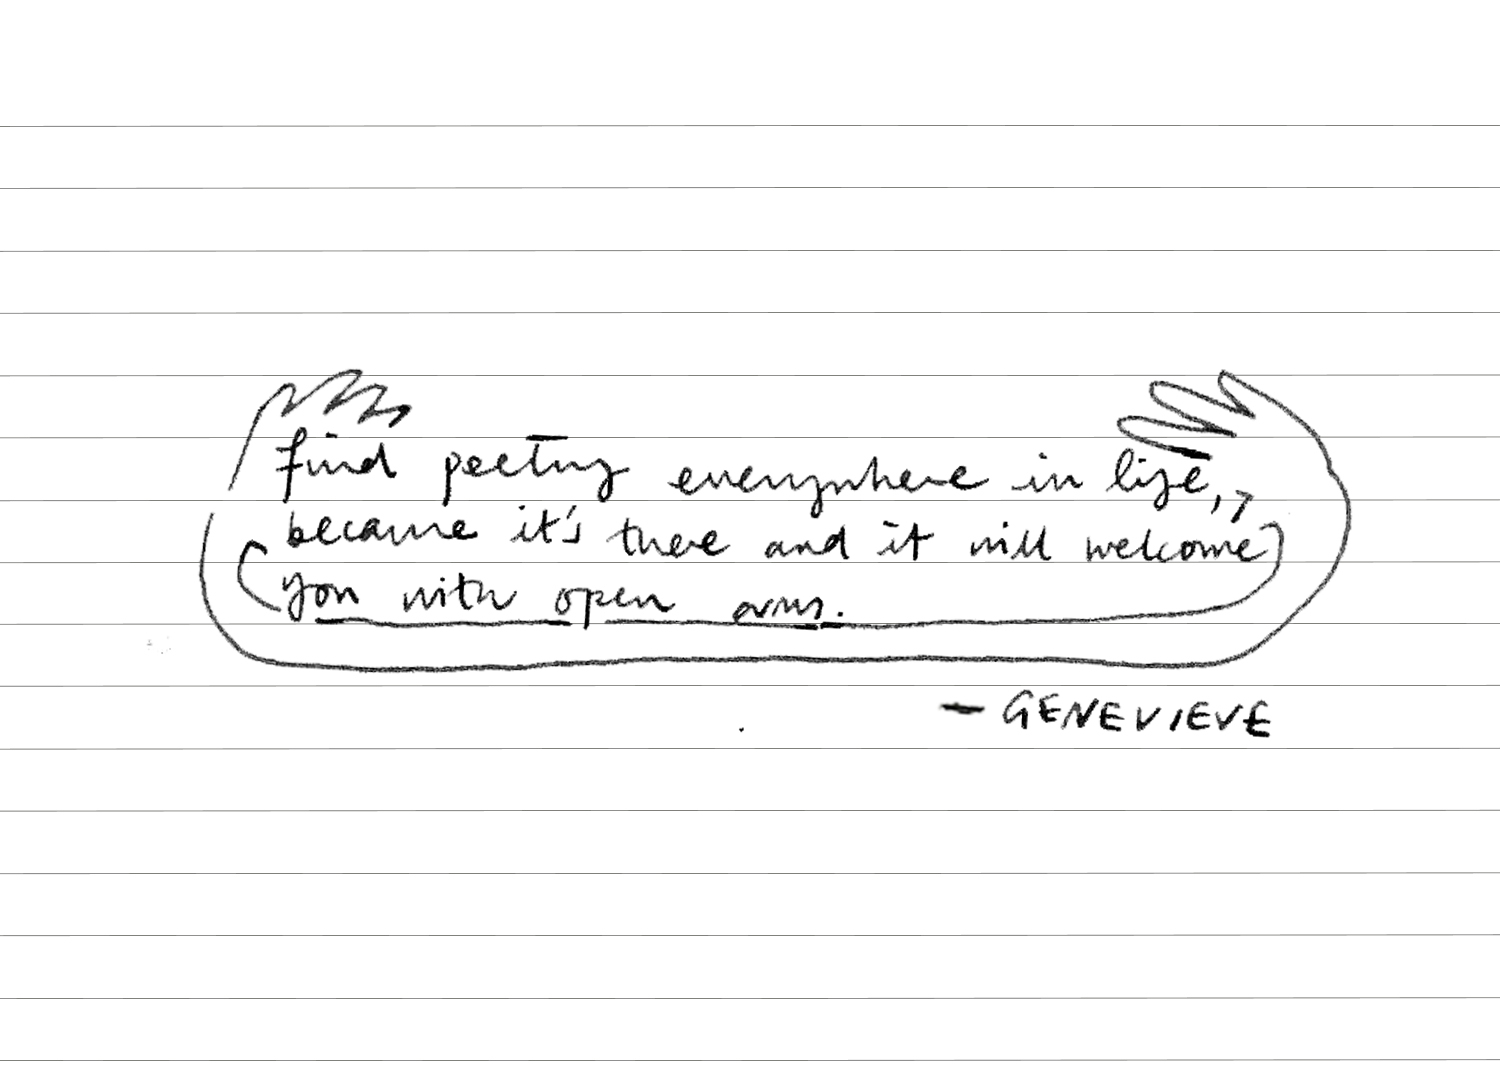 find poetry everywhere in life,
because it's there and it will welcome
you with open arms.
— GENEVIEVE